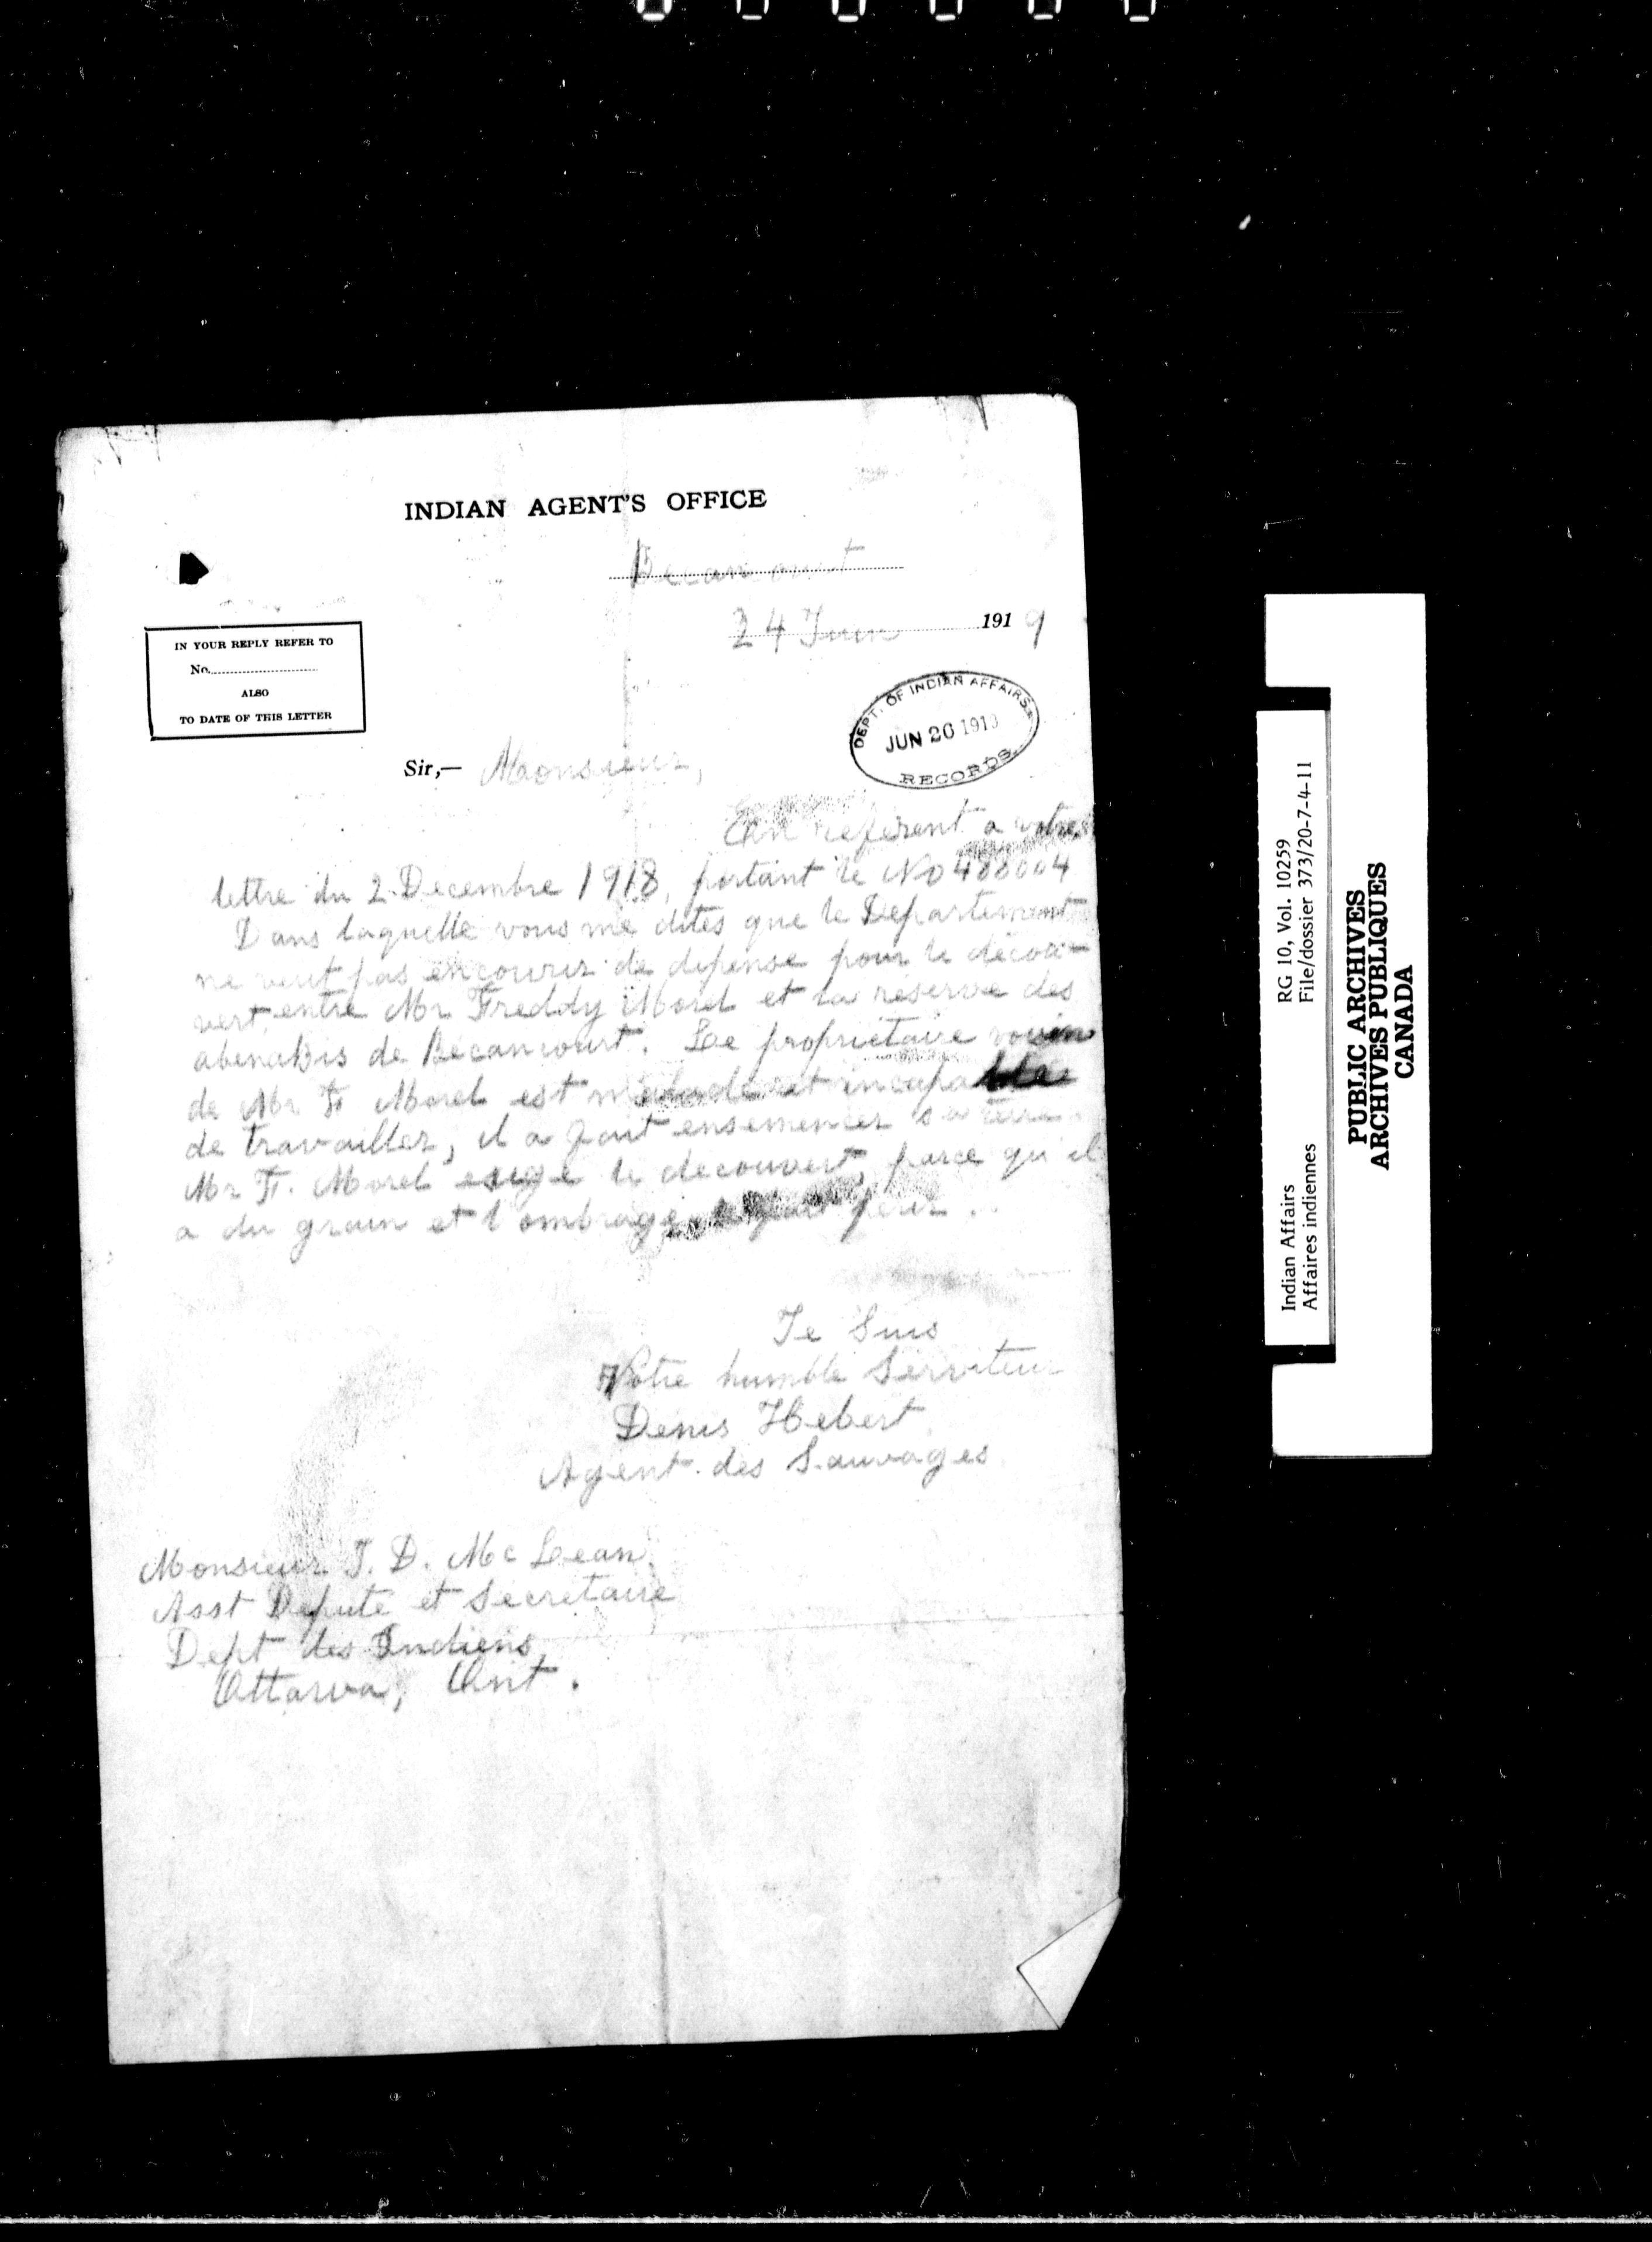 INDIAN AGENT'S OFFICE
Becancourt
24 Juin 1919
IN YOUR REPLY REFER TO
No.
ALSO
TO DATE OF THIS LETTER
DEPT. OF INDIAN AFFAIRS
JUN 26 1919
RECORDS
Sir,— Monsieur,
En referent a votre
lettre du 2 Decembre 1918, portant le No 488004
Dans laquelle vous me dites que le Departement
ne veut pas encourir de depense pour le decou-
vert entre Mr Freddy Morel et la reserve des
abenakis de Becancourt. Le proprietaire voisin
de Mr F Morel est malade et incapable
de travailler, il a fait ensemencer sa terre
Mr F. Morel exige le decouvert, parce qu il
a du grain et l ombrage fait perir.
Je Suis
Votre humble Serviteur
Denis Hebert
Agent des Sauvages
Monsieur J. D. Mc Lean
Asst Depute et Secretaire
Dept des Indiens
Ottawa, Ont.
Indian Affairs RG 10, Vol. 10259
Affaires indiennes File/dossier 373/20-7-4-11
PUBLIC ARCHIVES
ARCHIVES PUBLIQUES
CANADA